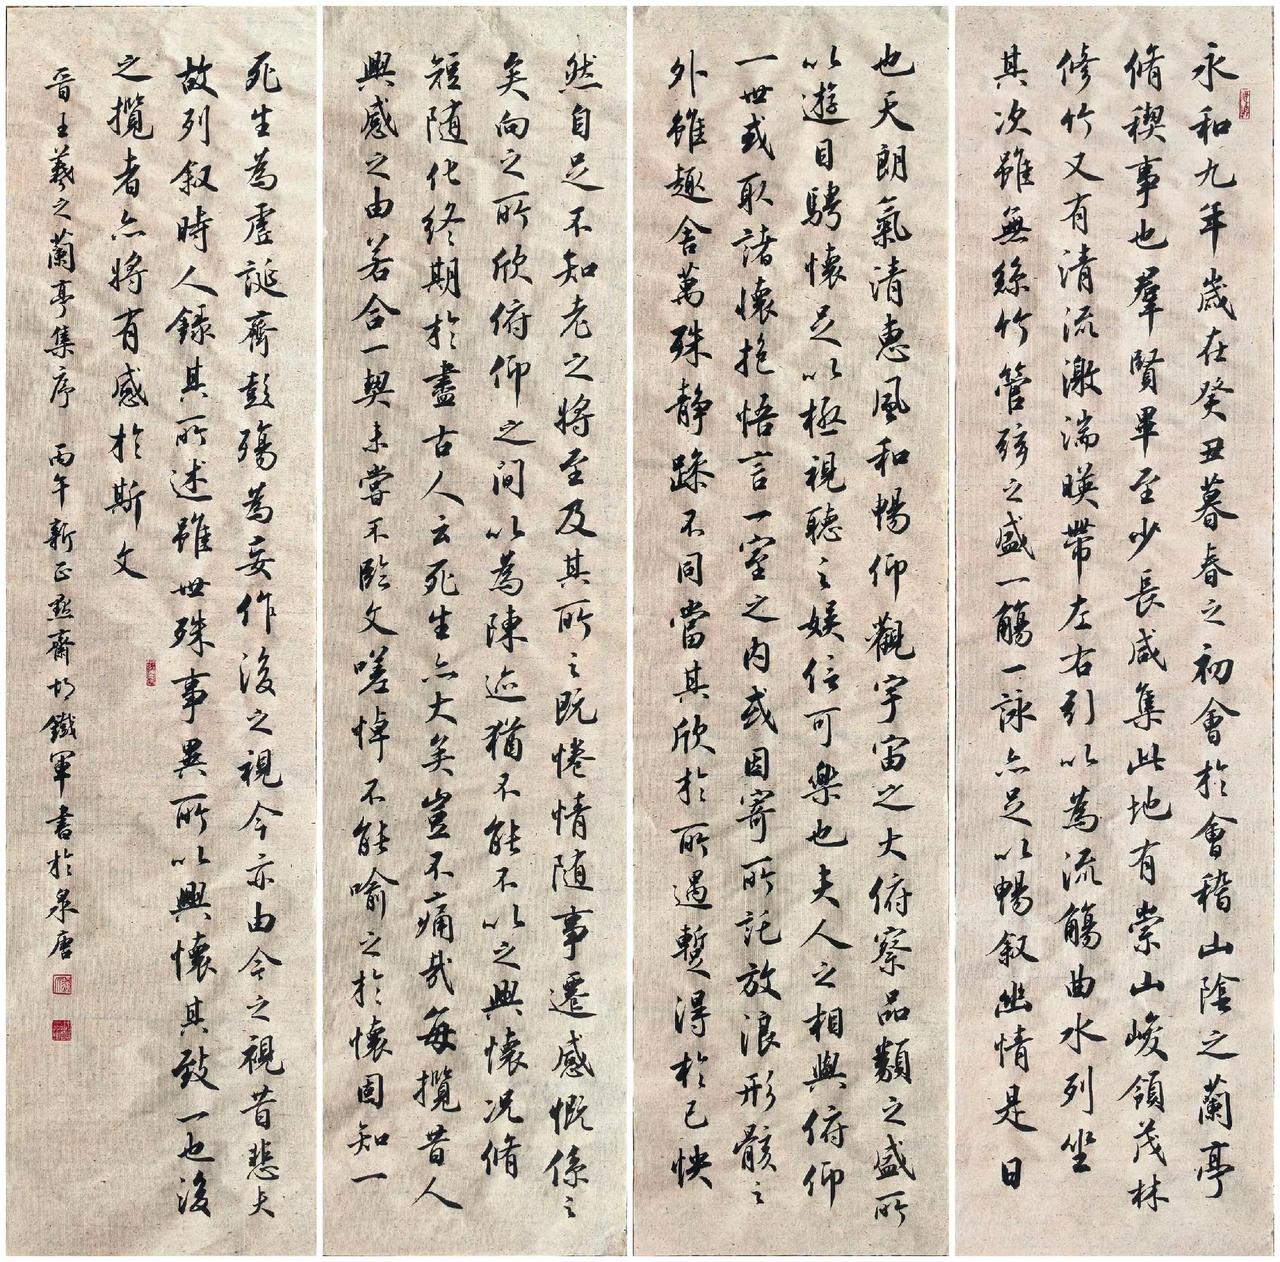 永和九年歲在癸丑暮春之初會於會稽山陰之蘭亭
脩禊事也羣賢畢至少長咸集此地有崇山峻領茂林
修竹又有清流激湍暎帶左右引以為流觴曲水列坐
其次雖無絲竹管弦之盛一觴一詠亦足以暢叙幽情是日
也天朗氣清惠風和暢仰觀宇宙之大俯察品類之盛所
以遊目騁懷足以極視聽之娛信可樂也夫人之相與俯仰
一世或取諸懷抱悟言一室之內或因寄所託放浪形骸之
外雖趣舍萬殊静躁不同當其欣於所遇蹔得於己怏
然自足不知老之將至及其所之既惓情隨事遷感慨係之
矣向之所欣俯仰之間以為陳迹猶不能不以之興懷況脩
短隨化終期於盡古人云死生亦大矣豈不痛哉每攬昔人
興感之由若合一契未嘗不臨文嗟悼不能喻之於懷固知一
死生為虛誕齊彭殤為妄作後之視今亦由今之視昔悲夫
故列叙時人錄其所述雖世殊事異所以興懷其致一也後
之攬者亦將有感於斯文
晉王羲之蘭亭集序 丙午新正齋胡鐵軍書於泉唐